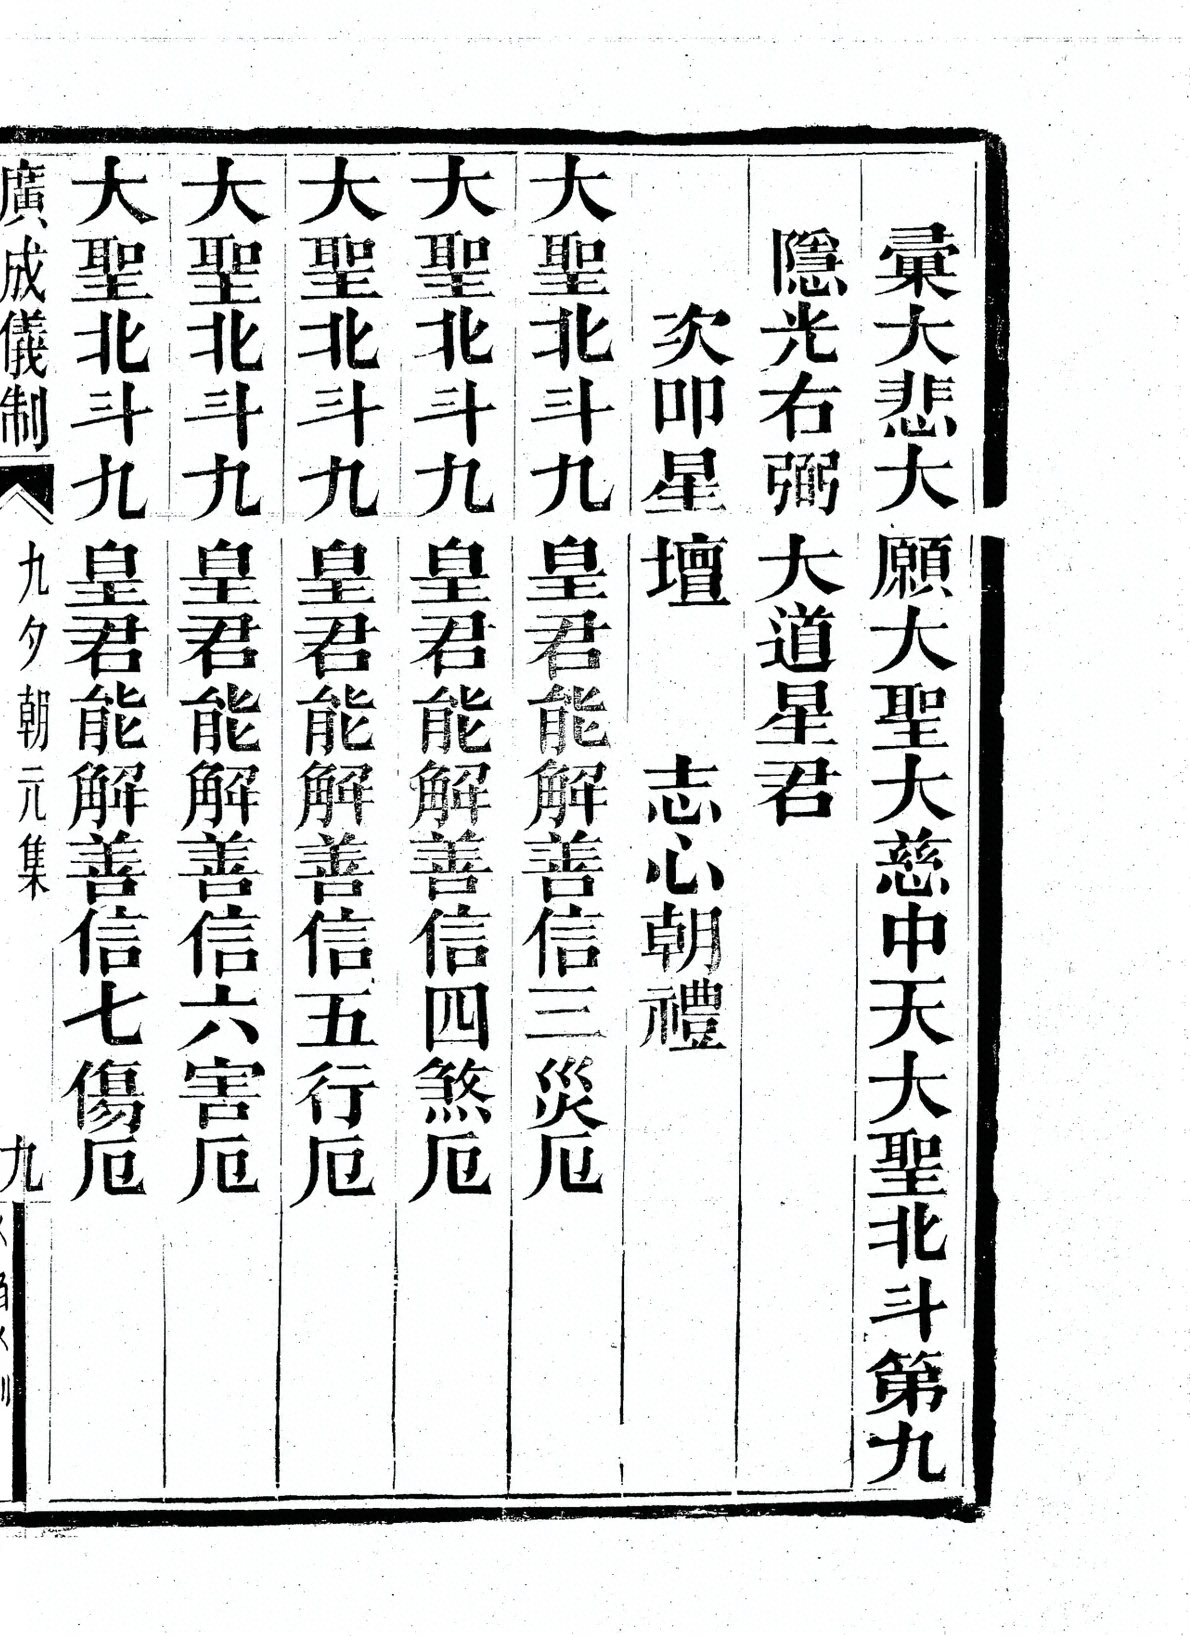 彙大悲大願大聖大慈中天大聖北斗第九
隱光右弼大道星君
次叩星壇　志心朝禮
大聖北斗九皇君能解善信三災厄
大聖北斗九皇君能解善信四煞厄
大聖北斗九皇君能解善信五行厄
大聖北斗九皇君能解善信六害厄
大聖北斗九皇君能解善信七傷厄
廣成儀制　九夕朝元集　九